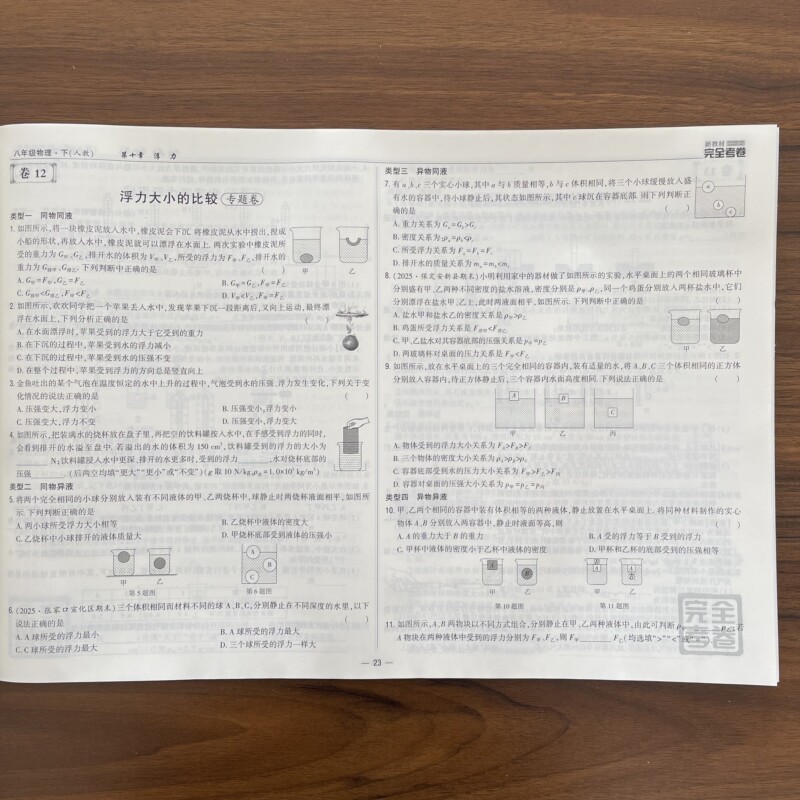 八年级物理·下(人教) 第十章 浮 力
卷 12
浮力大小的比较 专题卷
类型一 同物同液
1. 如图所示,将一块橡皮泥放入水中,橡皮泥会下沉.将橡皮泥从水中捞出,捏成
小船的形状,再放入水中,橡皮泥就可以漂浮在水面上.两次实验中橡皮泥所
受的重力为G甲、G乙,排开水的体积为V甲、V乙,所受的浮力为F甲、F乙,排开水的
重力为G排甲、G排乙.下列判断中正确的是 ( )
A. G甲=G乙,F甲=F乙
C. G排甲<G排乙,F甲<F乙
甲 乙
2. 如图所示,欢欢同学把一个苹果丢入水中,发现苹果下沉一段距离后,又向上运动,最终漂
浮在水面上,下列分析正确的是 ( )
A. 在水面漂浮时,苹果受到的浮力大于它受到的重力
B. 在下沉的过程中,苹果受到水的浮力减小
C. 在下沉的过程中,苹果受到水的压强不变
D. 在整个过程中,苹果受到浮力的方向总是竖直向上
3. 金鱼吐出的某个气泡在温度恒定的水中上升的过程中,气泡受到水的压强、浮力发生变化,下列关于变
化情况的说法正确的是 ( )
A. 压强变大,浮力变小 B. 压强变小,浮力变小
C. 压强变大,浮力不变 D. 压强变小,浮力变大
4. 如图所示,把装满水的烧杯放在盘子里,再把空的饮料罐按入水中,在手感受到浮力的同时,
会看到排开的水溢至盘中.若溢出的水的体积为150 cm³,饮料罐受到的浮力的大小为
N;饮料罐浸入水中更深、排开的水更多时,受到的浮力 ,水对烧杯底部的
压强 .(后两空均填“更大”“更小”或“不变”)(g取10 N/kg,ρ水=1.0×10³ kg/m³)
类型二 同物异液
5. 将两个完全相同的小球分别放入装有不同液体的甲、乙两烧杯中,球静止时两烧杯液面相平,如图所
示.下列判断正确的是 ( )
A. 两小球所受浮力大小相等 B. 乙烧杯中液体的密度大
C. 乙烧杯中小球排开的液体质量大 D. 甲烧杯底部受到液体的压强小
甲 乙 A B C
第5题图 第6题图
6. (2025·张家口宣化区期末)三个体积相同而材料不同的球A、B、C,分别静止在不同深度的水里,以下
说法正确的是 ( )
A. A球所受的浮力最小 B. A球所受的浮力最大
C. C球所受的浮力最大 D. 三个球所受的浮力一样大
— 23 —
新教材
完全考卷
类型三 异物同液
7. 有a、b、c三个实心小球,其中a与b质量相等,b与c体积相同,将三个小球缓慢放入盛
有水的容器中,待小球静止后,其状态如图所示,其中c球沉在容器底部.则下列判断正
确的是 ( )
A. 重力关系为
B. 密度关系为
C. 所受浮力关系为
D. 排开水的质量关系为
8. (2025·保定安新县期末)小明利用家中的器材做了如图所示的实验,水平桌面上的两个相同玻璃杯中
分别盛有甲、乙两种不同密度的盐水溶液,密度分别是ρ甲、ρ乙,同一个鸡蛋分别放入两杯盐水中,它们
分别漂浮在盐水甲、乙上,此时两液面相平,如图所示.下列判断中正确的是 ( )
A. 盐水甲和盐水乙的密度关系是ρ甲>ρ乙
B. 鸡蛋所受浮力关系是
C. 甲、乙盐水对其容器底部的压强关系是p甲=p乙
D. 两玻璃杯对桌面的压力关系是F甲<F乙
甲 乙
9. 如图所示,放在水平桌面上的三个完全相同的容器内,装有适量的水,将A、B、C三个体积相同的正方体
分别放入容器内,待正方体静止后,三个容器内水面高度相同.下列说法正确的是 ( )
A B C
甲 乙 丙
A. 物体受到的浮力大小关系为
B. 三个物体的密度大小关系为
C. 容器底部受到水的压力大小关系为F甲>F乙>F丙
D. 容器对桌面的压强大小关系为p甲=p乙=p丙
类型四 异物异液
10. 甲、乙两个相同的容器中装有体积相等的两种液体,静止放置在水平桌面上.将同种材料制作的实心
物体A、B分别放入两容器中,静止时液面等高,则 ( )
A. A的重力大于B的重力 B. A受的浮力等于B受到的浮力
C. 甲杯中液体的密度小于乙杯中液体的密度 D. 甲杯和乙杯的底部受到的压强相等
甲 乙 甲 乙
第10题图 第11题图
11. 如图所示,A、B两物块以不同方式组合,分别静止在甲、乙两种液体中,由此可判断
A物块在两种液体中受到的浮力分别为F甲、F乙,则F甲 F乙(均选填“>”“<”或
完全考卷